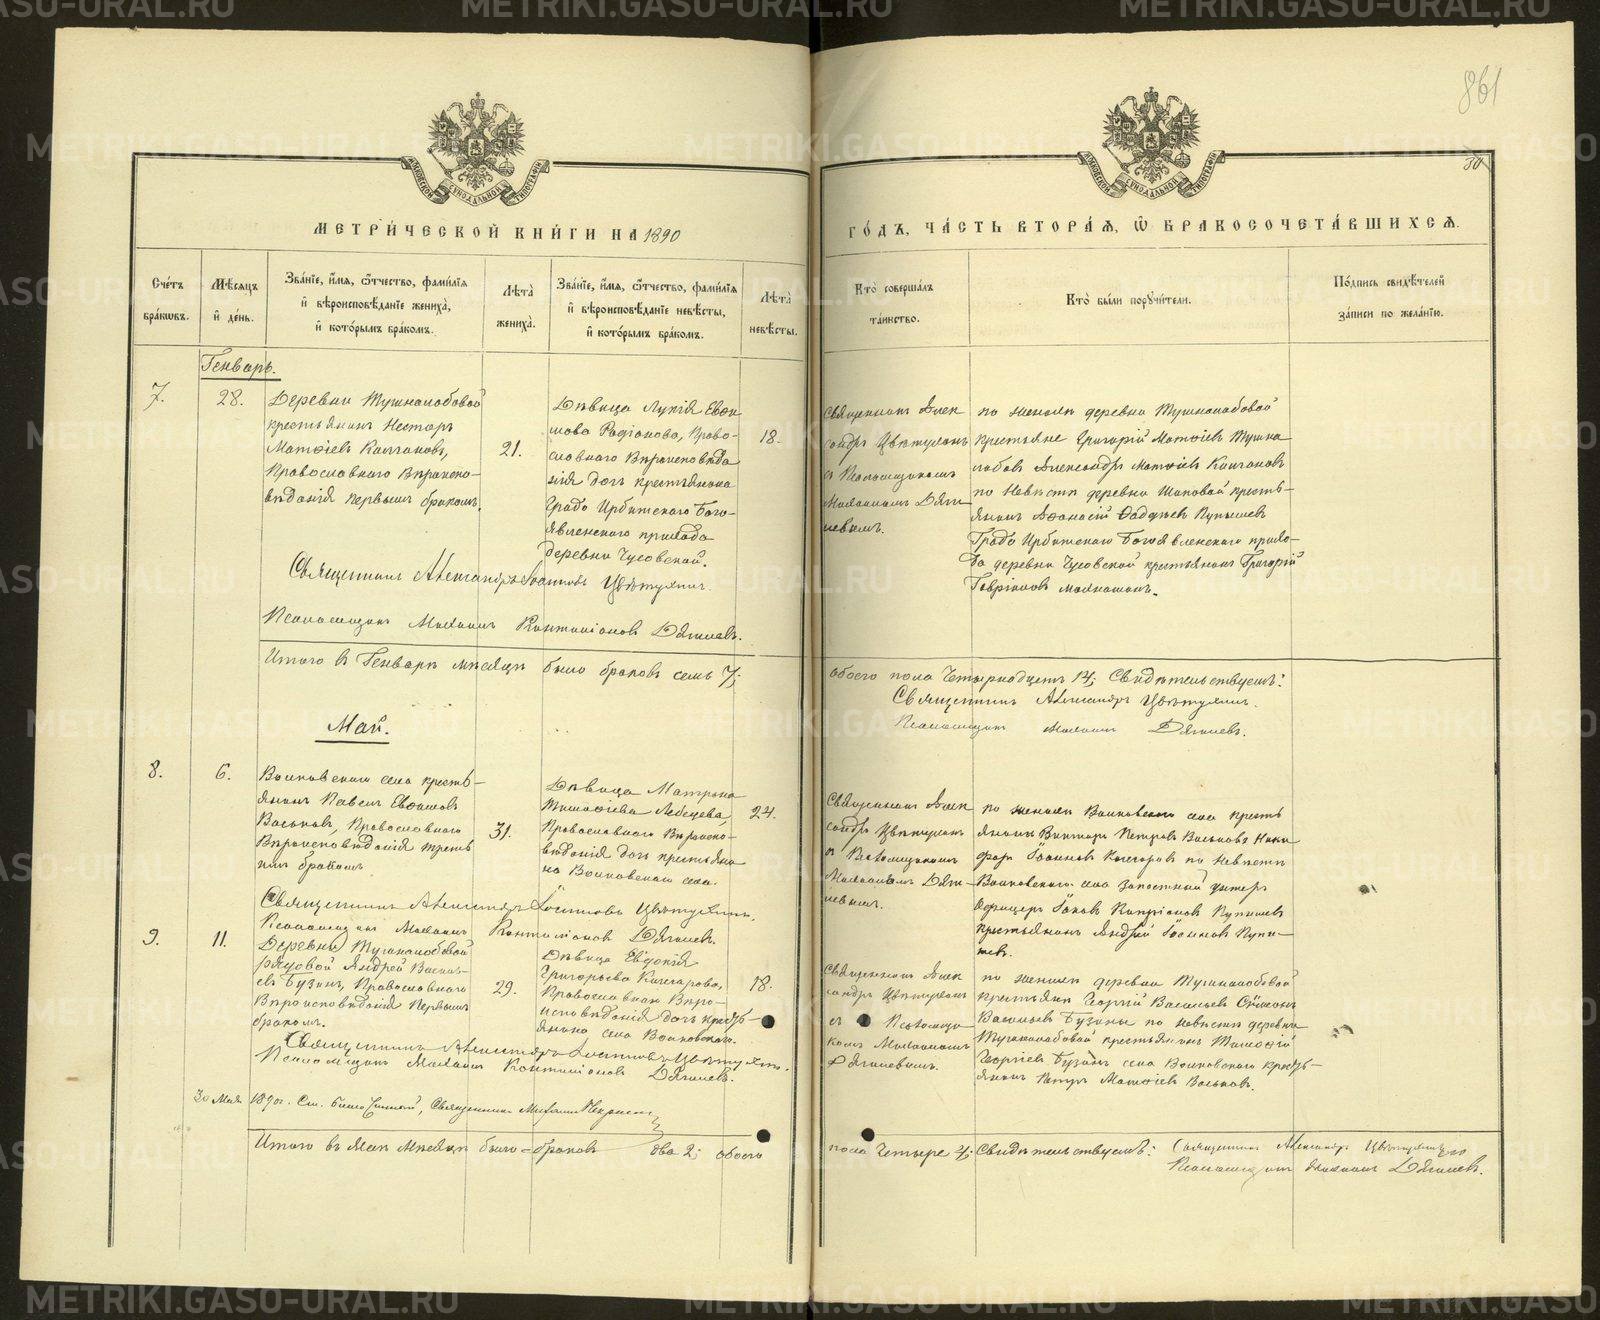 861
30
МОСКОВСКОЙ СѴНОДАЛЬНОЙ ТИПОГРАФІИ
МОСКОВСКОЙ СѴНОДАЛЬНОЙ ТИПОГРАФІИ
МЕТРИ́ЧЕСКОЙ КНИ́ГИ НА 1890
ГО́ДЪ, ЧА́СТЬ ВТОРА́Ѧ, Ѿ БРАКОСОЧЕТА́ВШИХСѦ.
Сче́тъ бра́кѡвъ.
Мѣ́сѧцъ и҆ де́нь.
Зва́нїе, и҆́мѧ, ѻ҆́тчество, фами́лїѧ
и҆ вѣроисповѣ́данїе жениха̀,
и҆ кото́рымъ бра́комъ.
Лѣ́та жениха̀.
Зва́нїе, и҆́мѧ, ѻ҆́тчество, фами́лїѧ
и҆ вѣроисповѣ́данїе невѣ́сты,
и҆ кото́рымъ бра́комъ.
Лѣ́та невѣ́сты.
Кто̀ соверша́лъ та́инство.
Кто̀ бы́ли порꙋчи́тели.
По́дпись свидѣ́телей
за́писи по жела́нїю.
Генварь.
7.
28.
Деревни Тушналобовой
крестьянинъ Несторъ
Матѳіевъ Колчановъ,
Православнаго Вѣроиспо-
вѣданія первымъ бракомъ.
21.
Дѣвица Лукія Евѳи
мова Родіонова, Право-
славнаго Вѣроисповѣда
нія дочь крестьянина
Града Ирбитскаго Бого-
явленскаго прихода
деревни Чусовской.
18.
Священникъ Алек
сандръ Цвѣтухинъ
съ Псаломщикомъ
Маломъ Дяги-
левымъ.
по женихѣ деревни Тушналобовой
крестьяне Григорій Матѳіевъ Тушна
лобовъ Александръ Матѳіевъ Колчановъ
по Невѣстѣ деревни крестьь-
янинъ Аѳанасій Ѳаддѣевъ Купышевъ
Града Ирбитскаго Богоявленскаго прихо-
да деревни Чусовской крестьянинъ Григорій
Гавріиловъ
Священникъ Александръ Іоанновъ Цвѣтухинъ.
Псаломщикъ Дягилевъ.
Итого въ Генварѣ мѣсяцѣ было браковъ семь 7;
обоего пола Четырнадцать 14; Свидѣтельствуемъ:
Священникъ Александръ Цвѣтухинъ.
Псаломщикъ Дягилевъ.
Май.
8.
6.
Волковскаго села кресть-
янинъ Павелъ Евѳимовъ
Васьковъ, Православнаго
Вѣроисповѣданія треть
имъ бракомъ
31.
Дѣвица Матрона
Тимоѳіева Лебедева,
Православнаго Вѣроиспо-
вѣданія дочь крестьяни
на Волковскаго села.
24.
Священникъ Алек
сандръ Цвѣтухинъ
съ Псаломщикомъ
Дяги-
левымъ.
по женихѣ Волковскаго села кресть
янинъ Викторъ Петровъ Васьковъ Ники
форъ Іоанновъ Кочегаровъ по Невѣстѣ
Волковскаго села Запасный унтеръ
Офицеръ Іаковъ Кипріановъ Купышевъ
крестьянинъ Андрей Іоанновъ Купы-
шевъ.
Священникъ Александръ Іоанновъ Цвѣтухинъ.
Псаломщикъ Дягилевъ.
9.
11.
Деревни Тушналобовой
рядовой Андрей Василь-
евъ Бузинъ, Православнаго
Вѣроисповѣданія Первымъ
бракомъ.
29.
Дѣвица Евдокія
Григорьева Кочегарова,
Православнаго Вѣро-
исповѣданія дочь кресть-
янина села Волковскаго.
18.
Священникъ Алек
сандръ Цвѣтухинъ
съ Псаломщи
комъ
Дягилевымъ.
по женихѣ деревни Тушналобовой
крестьяне Георгій Васильевъ Симеонъ
Васильевъ Бузины по невѣстѣ деревни
Тушналобовой крестьянинъ Тимоѳей
Георгіевъ Бузинъ села Волковскаго кресть-
янинъ Петръ Матѳіевъ Васьковъ.
Священникъ Александръ Іоанновъ Цвѣтухинъ.
Псаломщикъ Дягилевъ.
30 Мая 1890г. Священникъ
Итого въ Маѣ Мѣсяцѣ было браковъ два 2; обоего
пола Четыре 4; Свидѣтельствуемъ: Священникъ Александръ Цвѣтухинъ
Псаломщикъ Дягилевъ.
METRIKI.GASO-URAL.RU